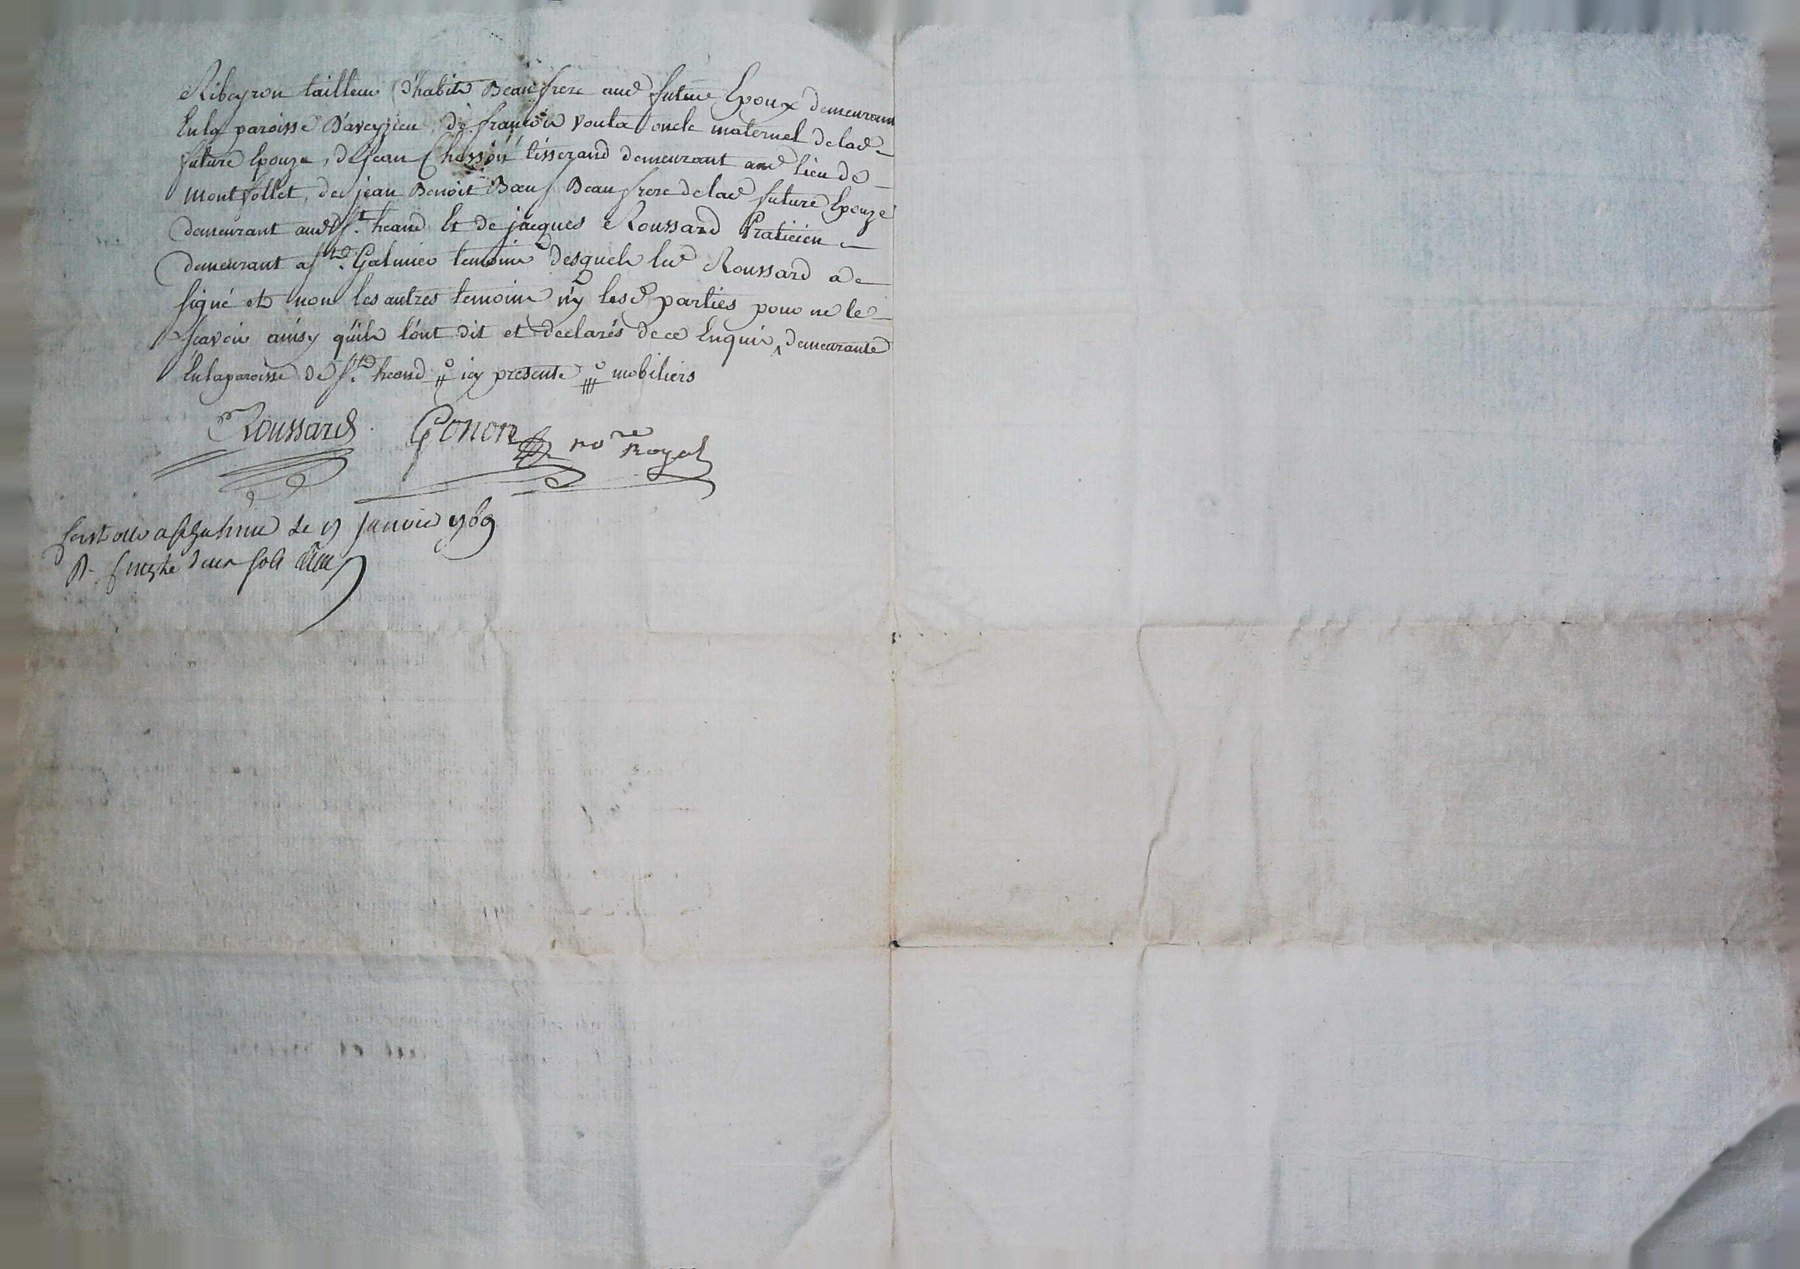 Ribeyron tailleur d'habits Beaufrere aud future Epoux demeurant
En la paroisse D'aveyzieu, de francois vouta oncle maternel de lad
future Epouze, de jean Chossón tisserand demeurant aud lieu de
montfollet, de jean Benoit Bœuf Beaufrere de lad future Epouze
demeurant aud St heand Et de jacques Roussard Praticien
demeurant a St Galmier temoins desquels led Roussard a
signé et non les autres temoins n'y lesd parties pour ne le
scavoir ainsy quils lónt dit et declarés de ce Enquis, demeurante
En la paroisse de St heand icy presente mobiliers
Roussard Gonon nore Royal
le 17 Janvier 1769
sols